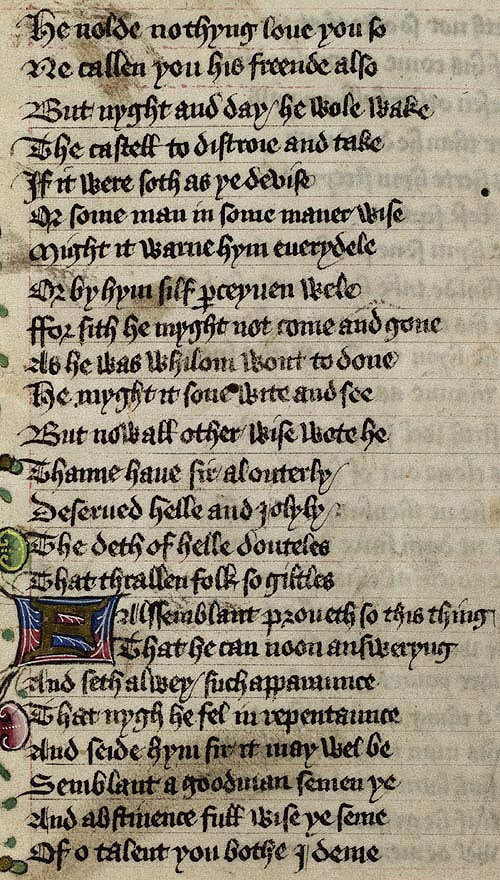 He nolde nothyng loue you so
Ne callen you his freende also
But nyght and day / he wole wake
The castell to distroie and take
If it were soth as ye devise
Or some man in some maner wise
Might it warne hym euerydele
Or by hym silf ꝑceyuen wele
ffor sith he myght not come and gone
As he was whilom wont to done
He myght it sone wite and see
But now all other wise wote he
Thanne haue sir al outerly /
Deserued helle and Iolyly
The deth of helle douteles
That thrallen folk so giltles
FAlssemblant proueth so this thing
That he can noon answeryng
And seth alwey / such apparaunce
That nygh he fel in repentaunce
And seide hym sir it may wel be
Semblant a goodman semen ye
And abstinence full wise ye seme
Of o talent you bothe I deme